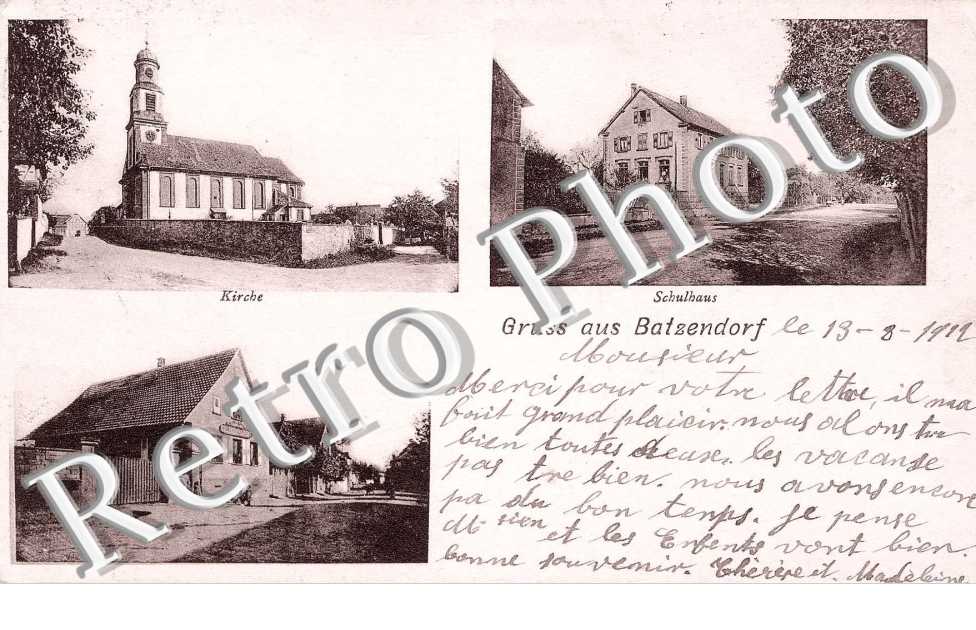 Kirche
Schulhaus
Gruss aus Batzendorf le 13-8-1912
Monsieur
Merci pour votre lettre, il ma
bout grand plaicir, nous alons tre
bien toutes deuse. les vacanse
pas tre bien. nous avons encore
pa du bon temps. Je pense
M. sien et les Enfents vont bien.
bonne souvenir. Thérèse et. Madeleine
Retro Photo